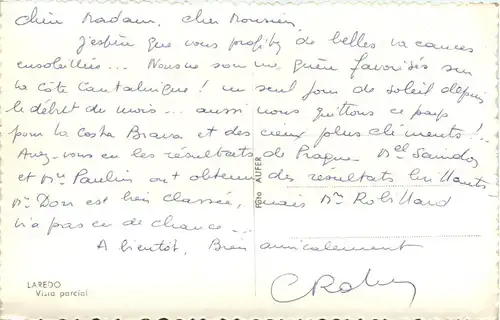 Chère Madame, cher Monsieur,
J'espère que vous profitez de belles vacances
ensoleillées... Nous ne sommes guère favorisés sur
la Côte Cantabrique ! un seul jour de soleil depuis
le début du mois... aussi nous quittons ce pays
pour la Costa Brava et des cieux plus cléments !..
Avez-vous eu les résultats de Prague. Mel
et Mr Paulin ont obtenu des résultats brillants.
Mr Don est bien classée, mais Mr Robillard
n'a pas eu de chance...
A bientôt, Bien amicalement
Foto AUFER
LAREDO
Vista parcial